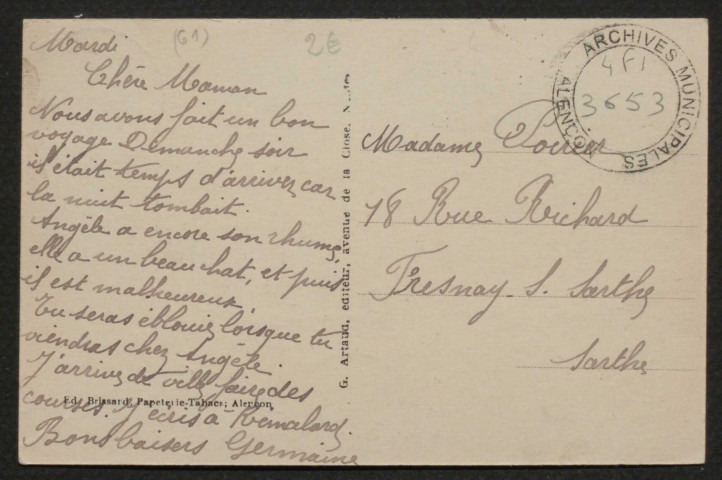 Mardi
(61)
2€
Chère Maman
Nous avons fait un bon
voyage Dimanche soir
il était temps d'arriver car
la nuit tombait.
Angèle a encore son rhume,
elle a un beau chat, et puis
il est malheureux,
Tu seras éblouie lorsque tu
viendras chez Angèle.
J'arrive de ville faire des
courses. J'écris à Rémalard.
Bons baisers Germaine
Ed. Brissard, Papeterie-Tabacs, Alençon
G. Artaud, éditeur, avenue de la Close, Nantes
ARCHIVES MUNICIPALES
ALENÇON
4 FI
3653
Madame Poirier
18 Rue Richard
Fresnay-S. Sarthe
Sarthe